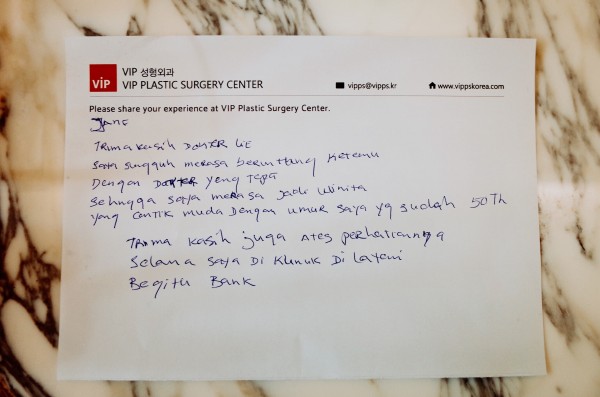 ViP
VIP 성형외과
VIP PLASTIC SURGERY CENTER
vipps@vipps.kr
www.vippskorea.com
Please share your experience at VIP Plastic Surgery Center.
Trima kasih DOKTER LEE
Saya sungguh merasa beruntung ketemu
Dengan DOKTER yeng
Sehngga saya merasa jadi winita
yang cantik muda Dengan umur saya yg sudah 50 Th
Trima kasih juga Ates perhatiannya
Selama saya Di klinuk Di layeni
Begitu Baik